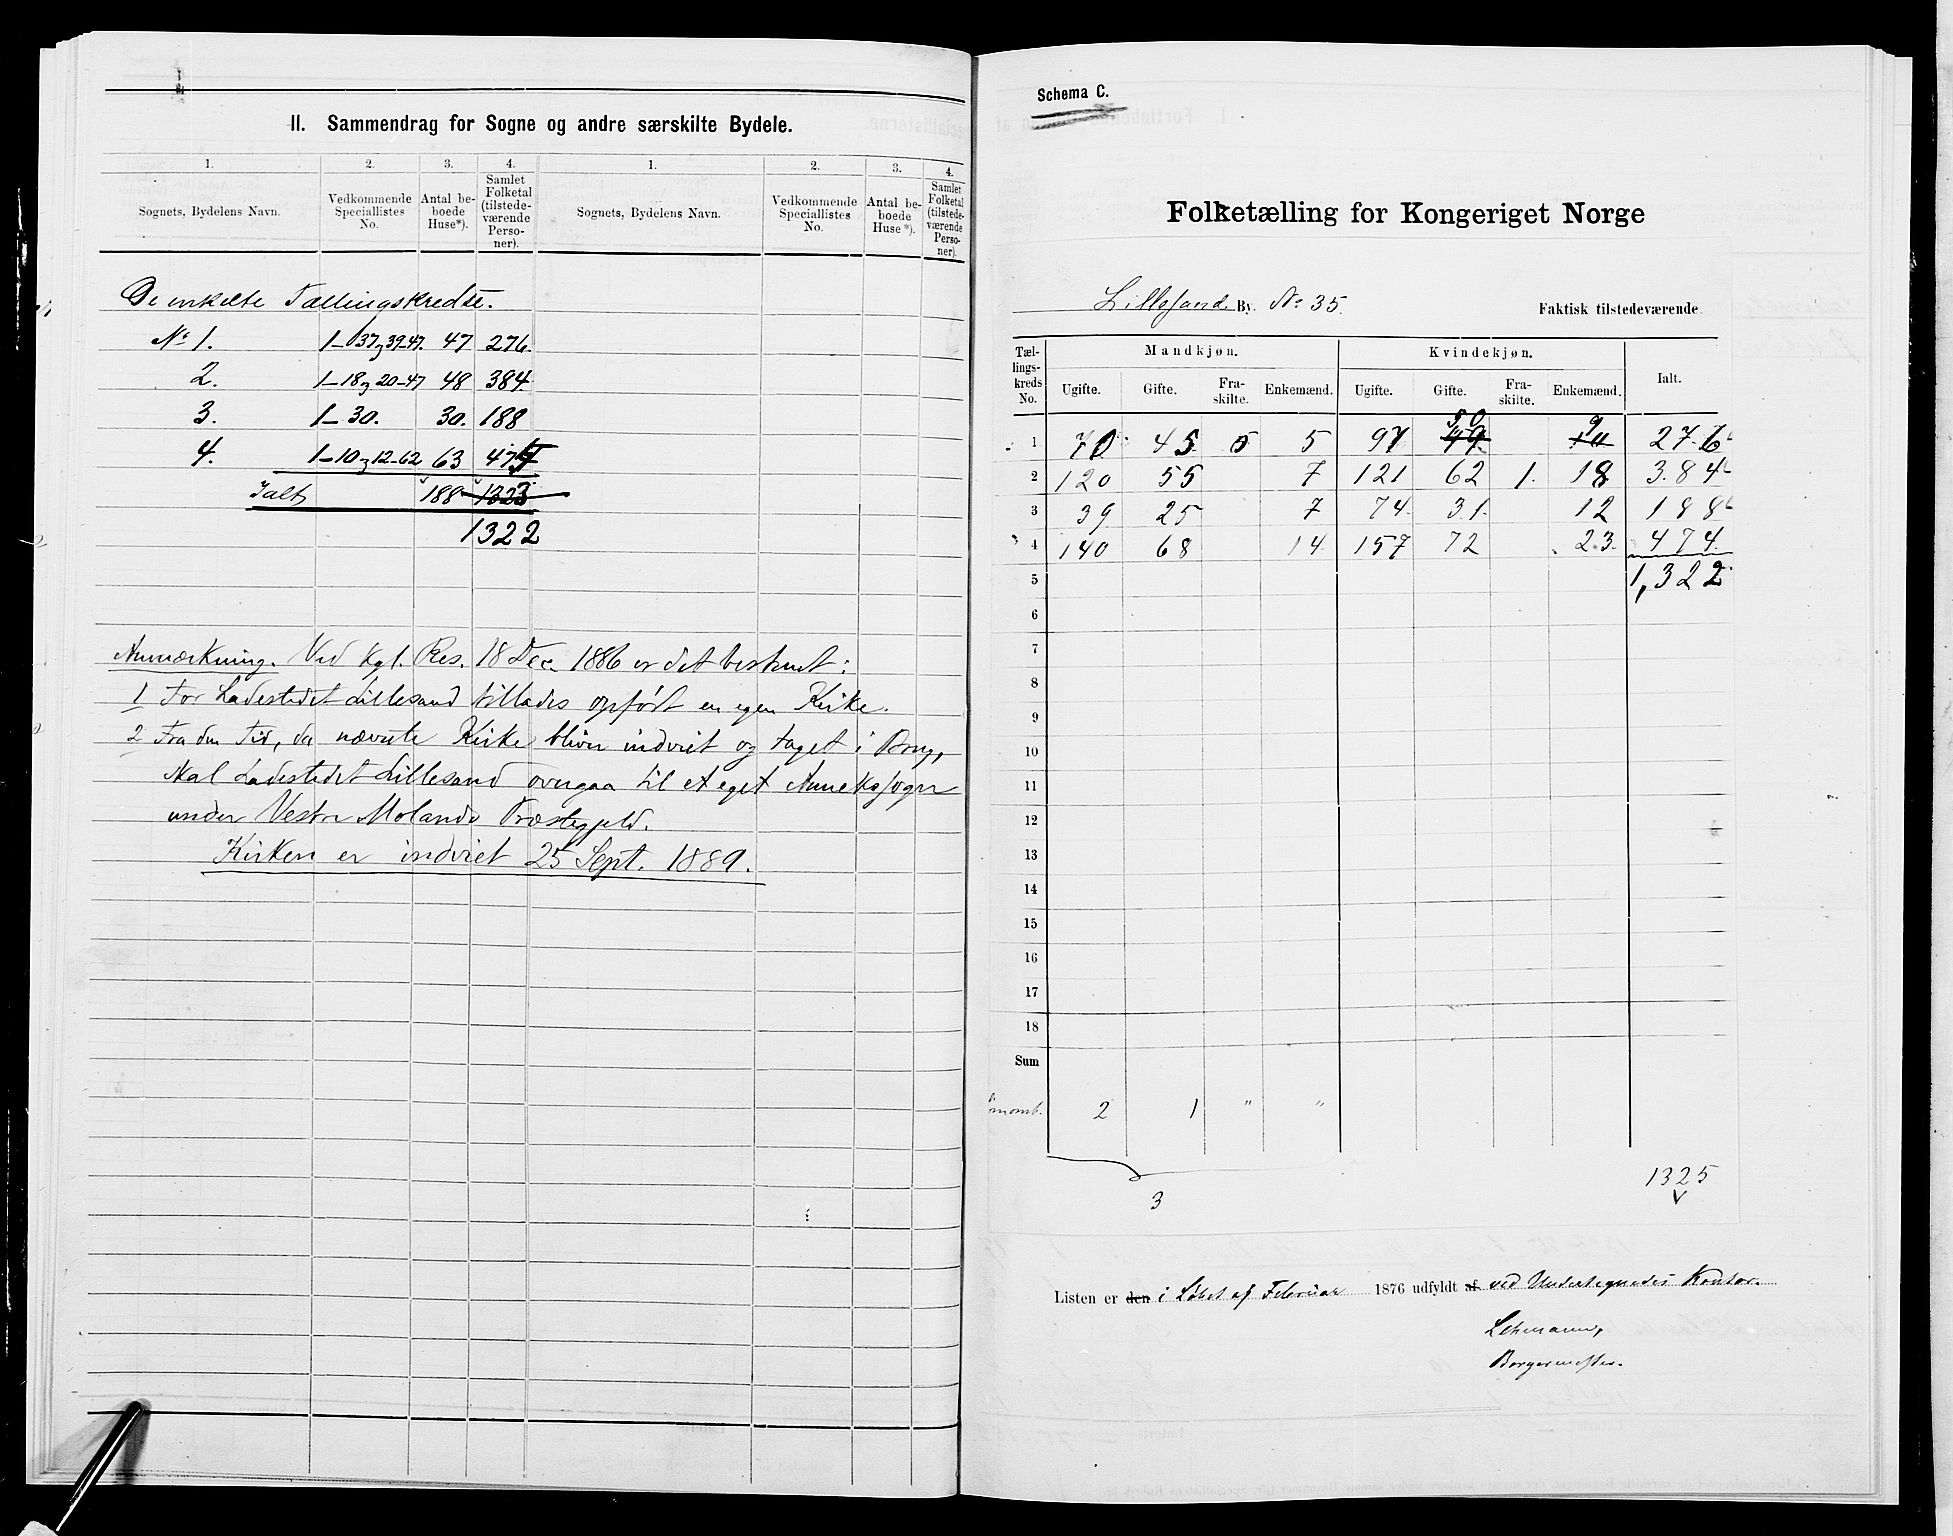 II. Sammendrag for Sogne og andre særskilte Bydele.
1. 2. 3. 4. 1. 2. 3. 4.
Sognets, Bydelens Navn. Vedkommende Speciallistes No. Antal beboede Huse*). Samlet Folketal (tilstedeværende Personer). Sognets, Bydelens Navn. Vedkommende Speciallistes No. Antal beboede Huse*). Samlet Folketal (tilstedeværende Personer).
De enkelte Tællingskredse.
No 1. 1-37 og 39-47. 47 276.
2. 1-18 og 20-47 48 384.
3. 1-30. 30. 188
4. 1-10 og 12-62 63 474
Ialt 188 1323
1322
Anmærkning. Ved Kgl. Res. 18 Dec. 1886 er det bestemt:
1 For Ladestedet Lillesand tillades opført en egen Kirke.
2 Fra den Tid, da nævnte Kirke bliver indviet og taget i Brug,
skal Ladestedet Lillesand overgaa til et eget Annekssogn
under Vestre Molands Præstegjeld.
Kirken er indviet 25 Sept. 1889.
Schema C.
Folketælling for Kongeriget Norge
Lillesand By. No 35. Faktisk tilstedeværende
Tællingskreds No. Mandkjøn. Kvindekjøn. Ialt.
Ugifte. Gifte. Fraskilte. Enkemænd. Ugifte. Gifte. Fraskilte. Enkemænd.
50 9
1 70 45 0 5 97 49 10 276
2 120 55 7 121 62 1. 18 384
3 39 25 7 74 31. 12 188
4 140 68 14 157 72 23. 474.
5 1,322
6
7
8
9
10
11
12
13
14
15
16
17
18
Sum
2 1 " "
3 1325
Listen er den i Løbet af Februar 1876 udfyldt af ved Undertegnedes Kontor.
Lehmann,
Borgermester.